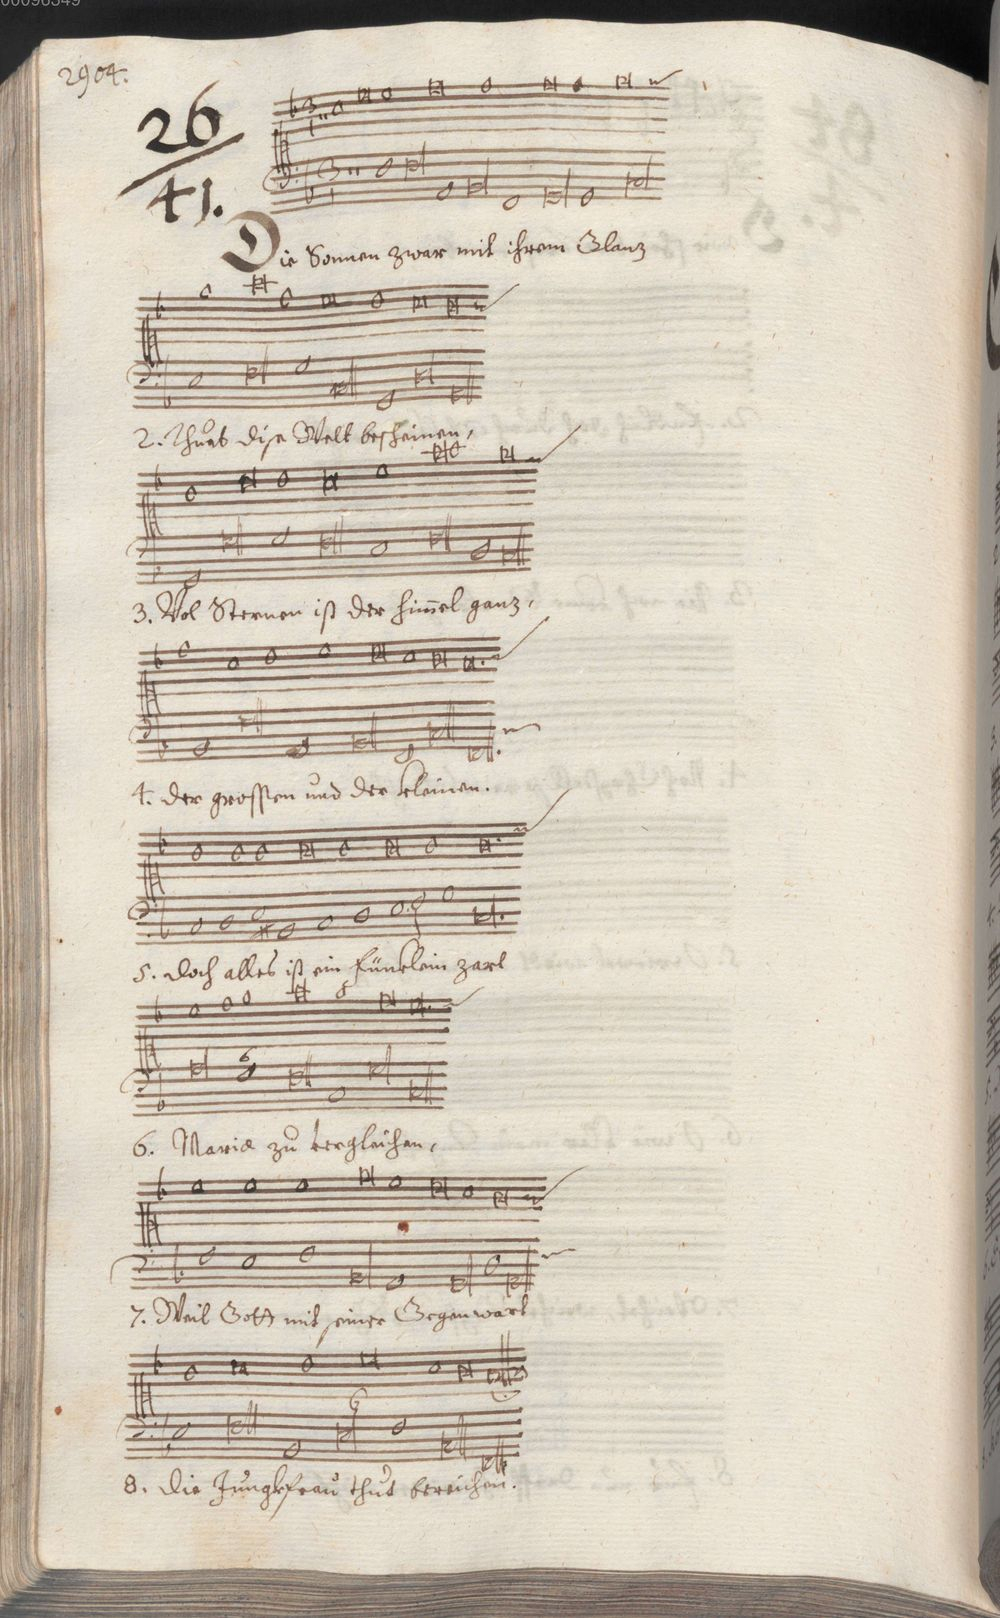 00096349
2904.
26
41.
Die Sonnen zwar mit ihrem Glanz
2. Thuet dise Welt bescheinen,
3. Vol Sternen ist der him̄el ganz,
4. der grossen und der kleinen.
5. doch alles ist ein fünklein zart
6. Mariæ zu vergleichen,
7. Weil Gott mit seiner Gegenwart
8. die Jungkfrau thut bereichen.